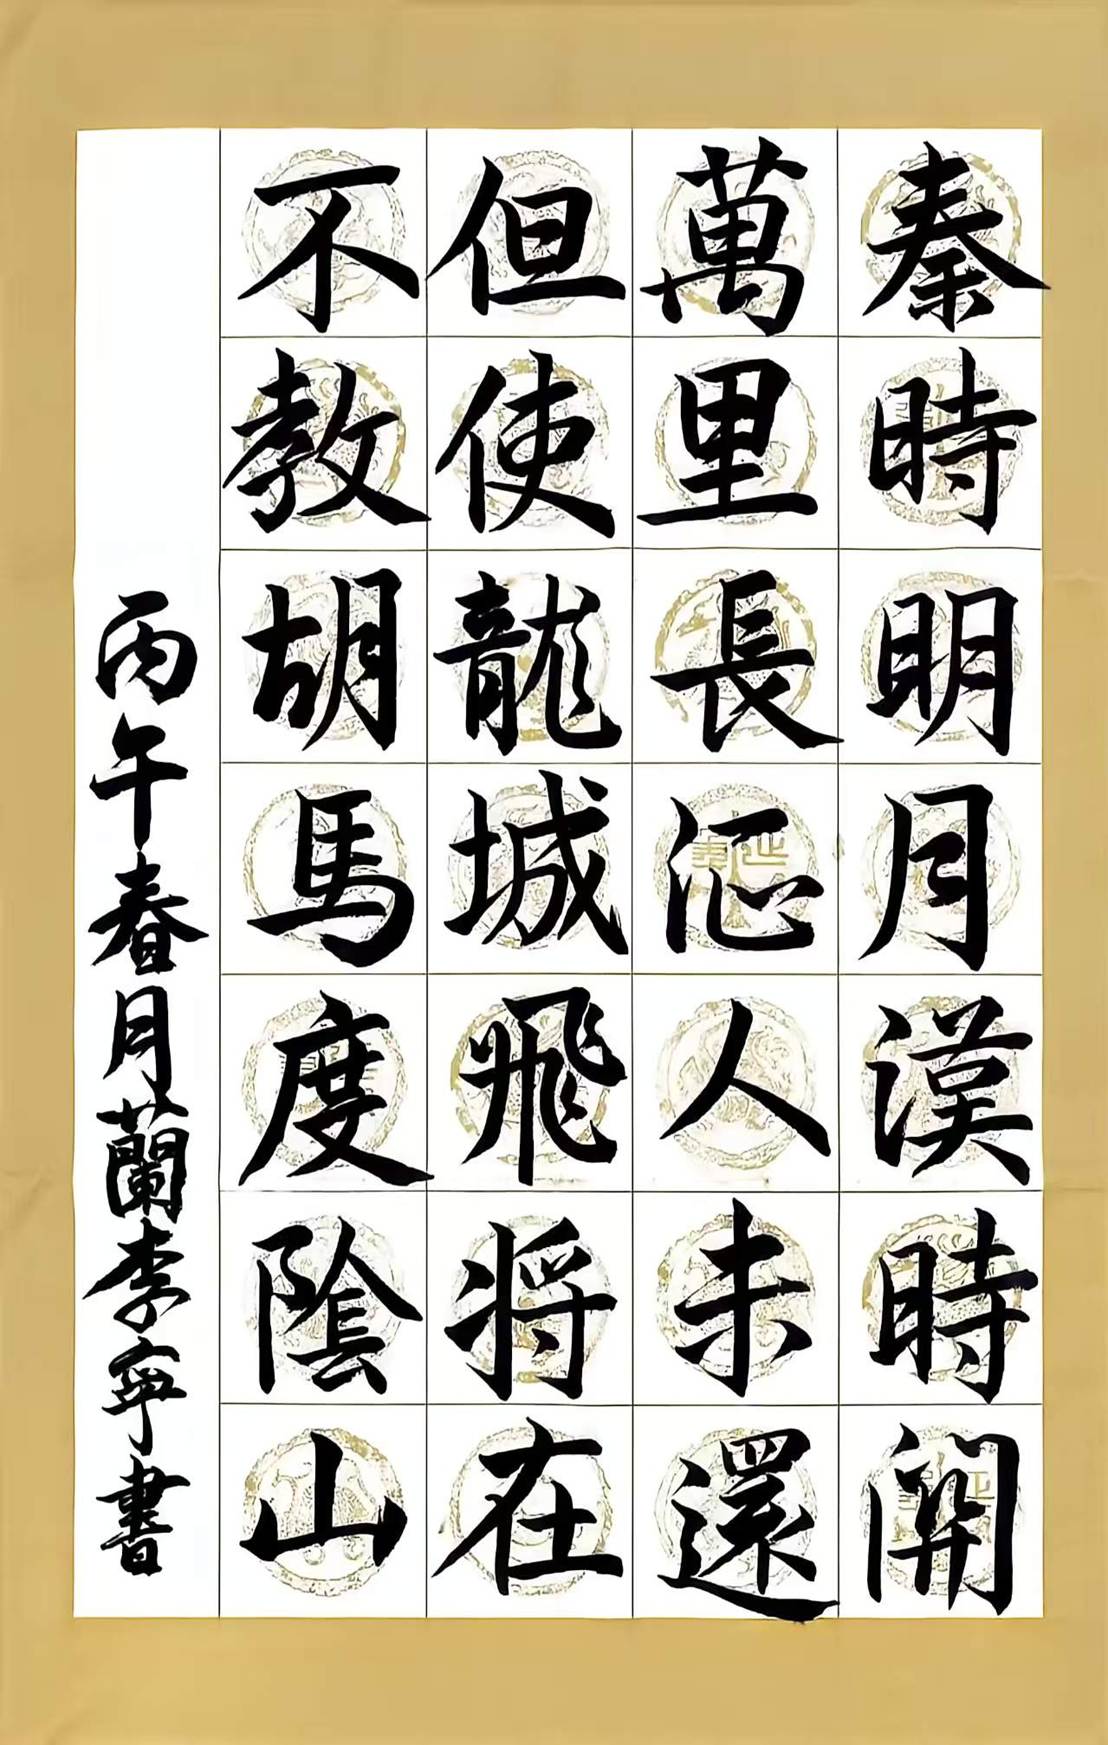 秦時明月漢時關
萬里長征人未還
但使龍城飛將在
不教胡馬度陰山
丙午春月蘭李寧書